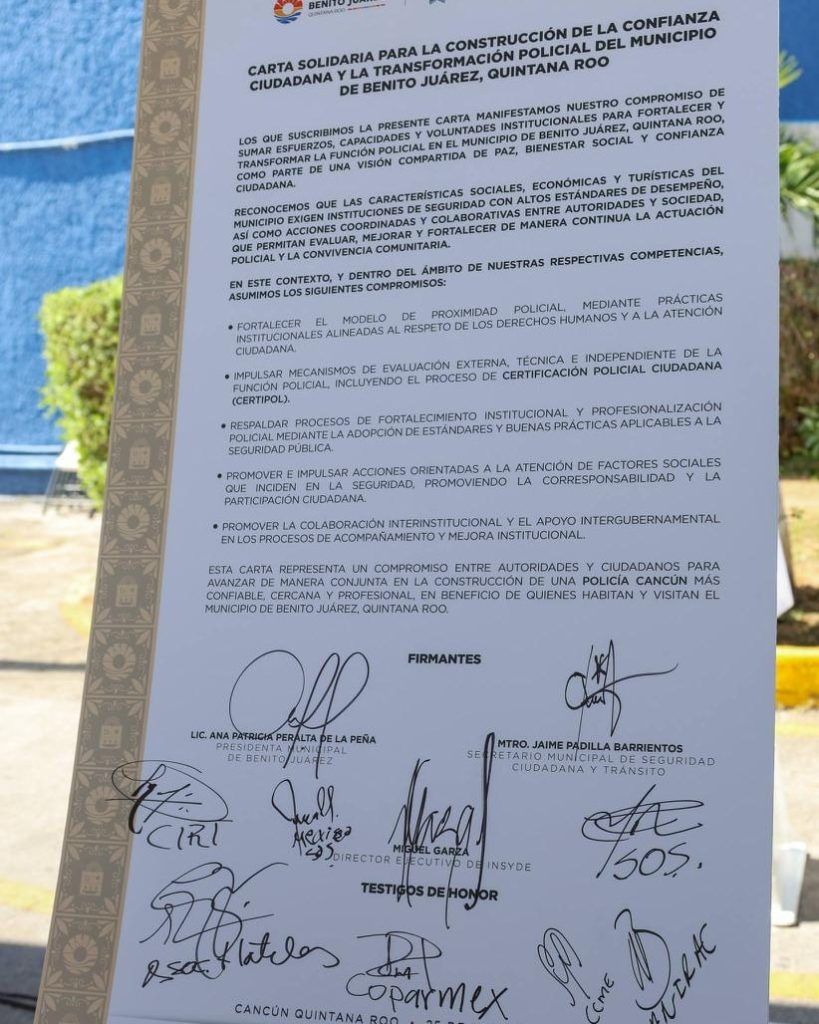 BENITO JUÁREZ
QUINTANA ROO
CARTA SOLIDARIA PARA LA CONSTRUCCIÓN DE LA CONFIANZA
CIUDADANA Y LA TRANSFORMACIÓN POLICIAL DEL MUNICIPIO
DE BENITO JUÁREZ, QUINTANA ROO
LOS QUE SUSCRIBIMOS LA PRESENTE CARTA MANIFESTAMOS NUESTRO COMPROMISO DE
SUMAR ESFUERZOS, CAPACIDADES Y VOLUNTADES INSTITUCIONALES PARA FORTALECER Y
TRANSFORMAR LA FUNCIÓN POLICIAL EN EL MUNICIPIO DE BENITO JUÁREZ, QUINTANA ROO,
COMO PARTE DE UNA VISIÓN COMPARTIDA DE PAZ, BIENESTAR SOCIAL Y CONFIANZA
CIUDADANA.
RECONOCEMOS QUE LAS CARACTERÍSTICAS SOCIALES, ECONÓMICAS Y TURÍSTICAS DEL
MUNICIPIO EXIGEN INSTITUCIONES DE SEGURIDAD CON ALTOS ESTÁNDARES DE DESEMPEÑO,
ASÍ COMO ACCIONES COORDINADAS Y COLABORATIVAS ENTRE AUTORIDADES Y SOCIEDAD,
QUE PERMITAN EVALUAR, MEJORAR Y FORTALECER DE MANERA CONTINUA LA ACTUACIÓN
POLICIAL Y LA CONVIVENCIA COMUNITARIA.
EN ESTE CONTEXTO, Y DENTRO DEL ÁMBITO DE NUESTRAS RESPECTIVAS COMPETENCIAS,
ASUMIMOS LOS SIGUIENTES COMPROMISOS:
• FORTALECER EL MODELO DE PROXIMIDAD POLICIAL, MEDIANTE PRÁCTICAS
INSTITUCIONALES ALINEADAS AL RESPETO DE LOS DERECHOS HUMANOS Y A LA ATENCIÓN
CIUDADANA.
• IMPULSAR MECANISMOS DE EVALUACIÓN EXTERNA, TÉCNICA E INDEPENDIENTE DE LA
FUNCIÓN POLICIAL, INCLUYENDO EL PROCESO DE CERTIFICACIÓN POLICIAL CIUDADANA
(CERTIPOL).
• RESPALDAR PROCESOS DE FORTALECIMIENTO INSTITUCIONAL Y PROFESIONALIZACIÓN
POLICIAL MEDIANTE LA ADOPCIÓN DE ESTÁNDARES Y BUENAS PRÁCTICAS APLICABLES A LA
SEGURIDAD PÚBLICA.
• PROMOVER E IMPULSAR ACCIONES ORIENTADAS A LA ATENCIÓN DE FACTORES SOCIALES
QUE INCIDEN EN LA SEGURIDAD, PROMOVIENDO LA CORRESPONSABILIDAD Y LA
PARTICIPACIÓN CIUDADANA.
• PROMOVER LA COLABORACIÓN INTERINSTITUCIONAL Y EL APOYO INTERGUBERNAMENTAL
EN LOS PROCESOS DE ACOMPAÑAMIENTO Y MEJORA INSTITUCIONAL.
ESTA CARTA REPRESENTA UN COMPROMISO ENTRE AUTORIDADES Y CIUDADANOS PARA
AVANZAR DE MANERA CONJUNTA EN LA CONSTRUCCIÓN DE UNA POLICÍA CANCÚN MÁS
CONFIABLE, CERCANA Y PROFESIONAL, EN BENEFICIO DE QUIENES HABITAN Y VISITAN EL
MUNICIPIO DE BENITO JUÁREZ, QUINTANA ROO.
FIRMANTES
LIC. ANA PATRICIA PERALTA DE LA PEÑA
PRESIDENTA MUNICIPAL
DE BENITO JUÁREZ
MTRO. JAIME PADILLA BARRIENTOS
SECRETARIO MUNICIPAL DE SEGURIDAD
CIUDADANA Y TRÁNSITO
CIRI
MEXICO
SOS
MIGUEL GARZA
DIRECTOR EJECUTIVO DE INSYDE
SOS.
TESTIGOS DE HONOR
Coparmex
CCME
CANIRAC
CANCÚN QUINTANA ROO